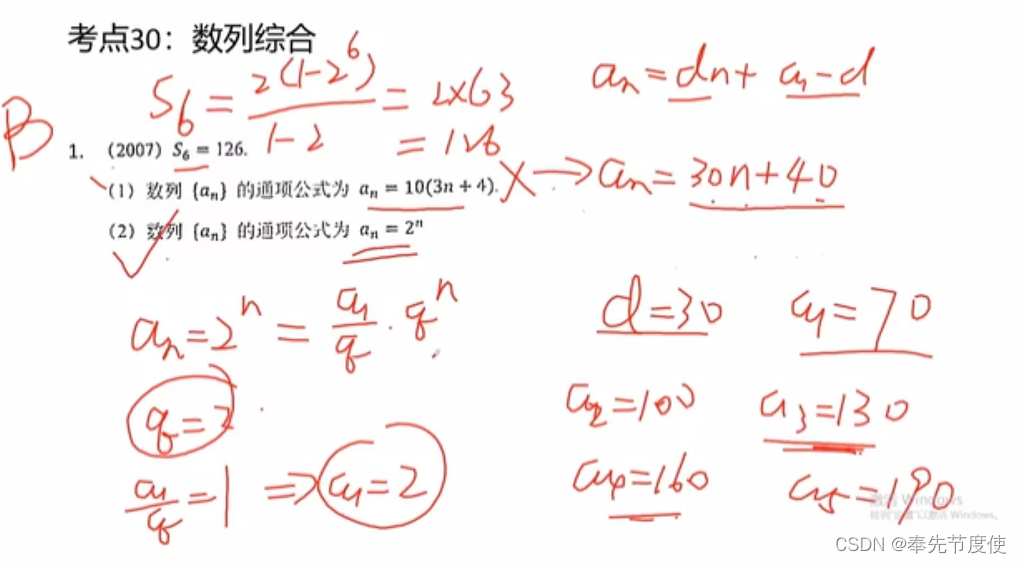 考点30：数列综合
S₆ = 2(1-2⁶)/(1-2) = 2×63
= 126
aₙ = dn + a₁-d
B
1. (2007) S₆ = 126.
(1) 数列 {aₙ} 的通项公式为 aₙ = 10(3n + 4). × → aₙ = 30n+40
(2) 数列 {aₙ} 的通项公式为 aₙ = 2ⁿ
✓
aₙ = 2ⁿ = a₁/q · qⁿ
d=30 a₁=70
q=2
a₂=100 a₃=130
a₁/q = 1 ⇒ a₁=2
a₄=160 a₅=190
激活 Windows
转到"设置"以激活 Windows。
CSDN @奉先节度使